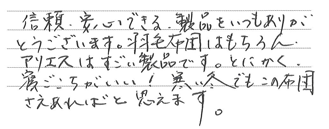 信頼・安心できる、製品をいつもありが
とうございます。羽毛布団はもちろん、
アリエスはすごい製品です。とにかく、
寝ごこちがいい！寒い冬でもこの布団
さえあればと思えます。